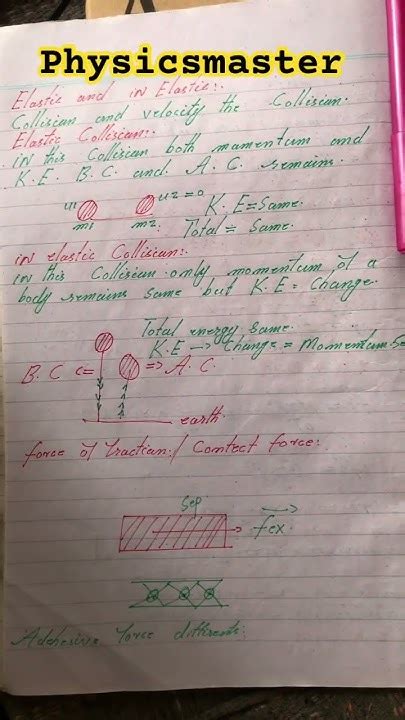 Physicsmaster
Elastic and in Elastic:.
Collision and velocity the Collision.
Elastic Collision:.
in this Collision both momentum and
K.E. B.C. and A.C. remains.
u1 u2=0 K.E=Same.
m1 m2. Total= Same.
in elastic Collision:.
in this Collision only momentum of a
body remains same but K.E= Change.
Total energy same.
K.E → Change = Momentum Sa
B.C A.C.
earth.
force of fraction:/ Contect force:
Sep
fex.
Adhesive force differents: